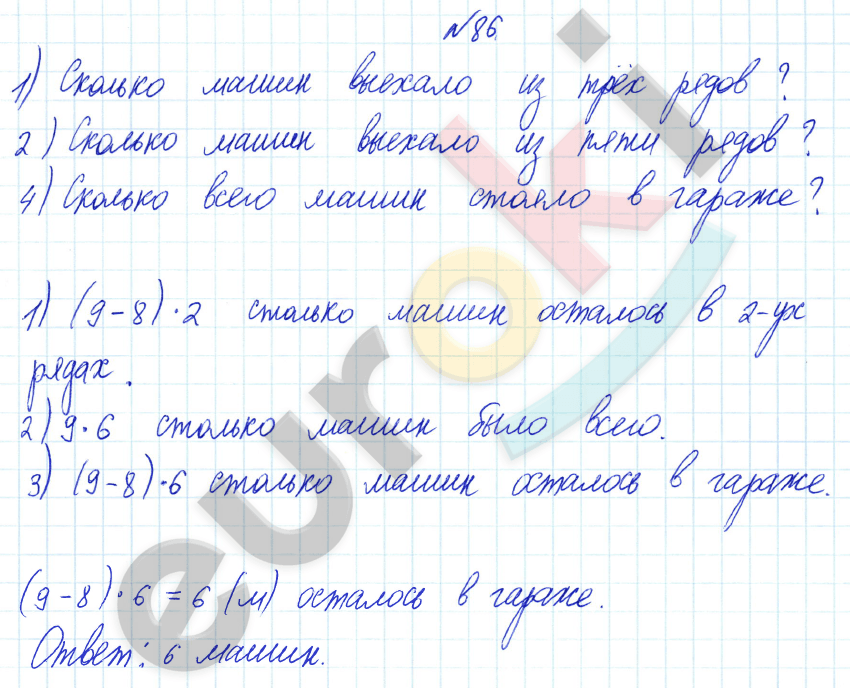 №86.
1) Сколько машин выехало из трёх рядов?
2) Сколько машин выехало из пяти рядов?
4) Сколько всего машин стояло в гараже?
1) (9-8)·2 столько машин осталось в 2-ух
рядах.
2) 9·6 столько машин было всего.
3) (9-8)·6 столько машин осталось в гараже.
(9-8)·6=6 (м) осталось в гараже.
Ответ: 6 машин.
euroki